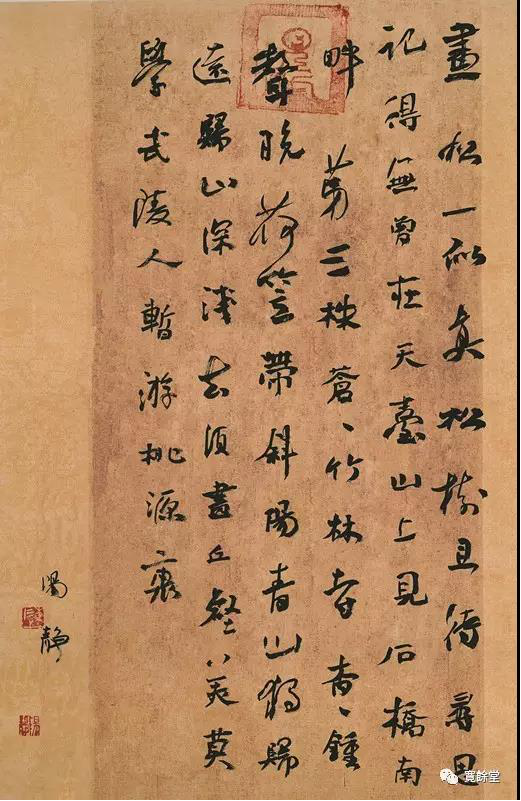 畫松一似真松樹且待尋思
記得無曾在天臺山上見石橋南
畔第三株蒼〻竹林寺杳〻鍾
聲晚荷笠帶斜陽青山獨歸
遠歸山深淺去須盡丘壑美莫
學武陵人暫游桃源裏
靜
寬餘堂